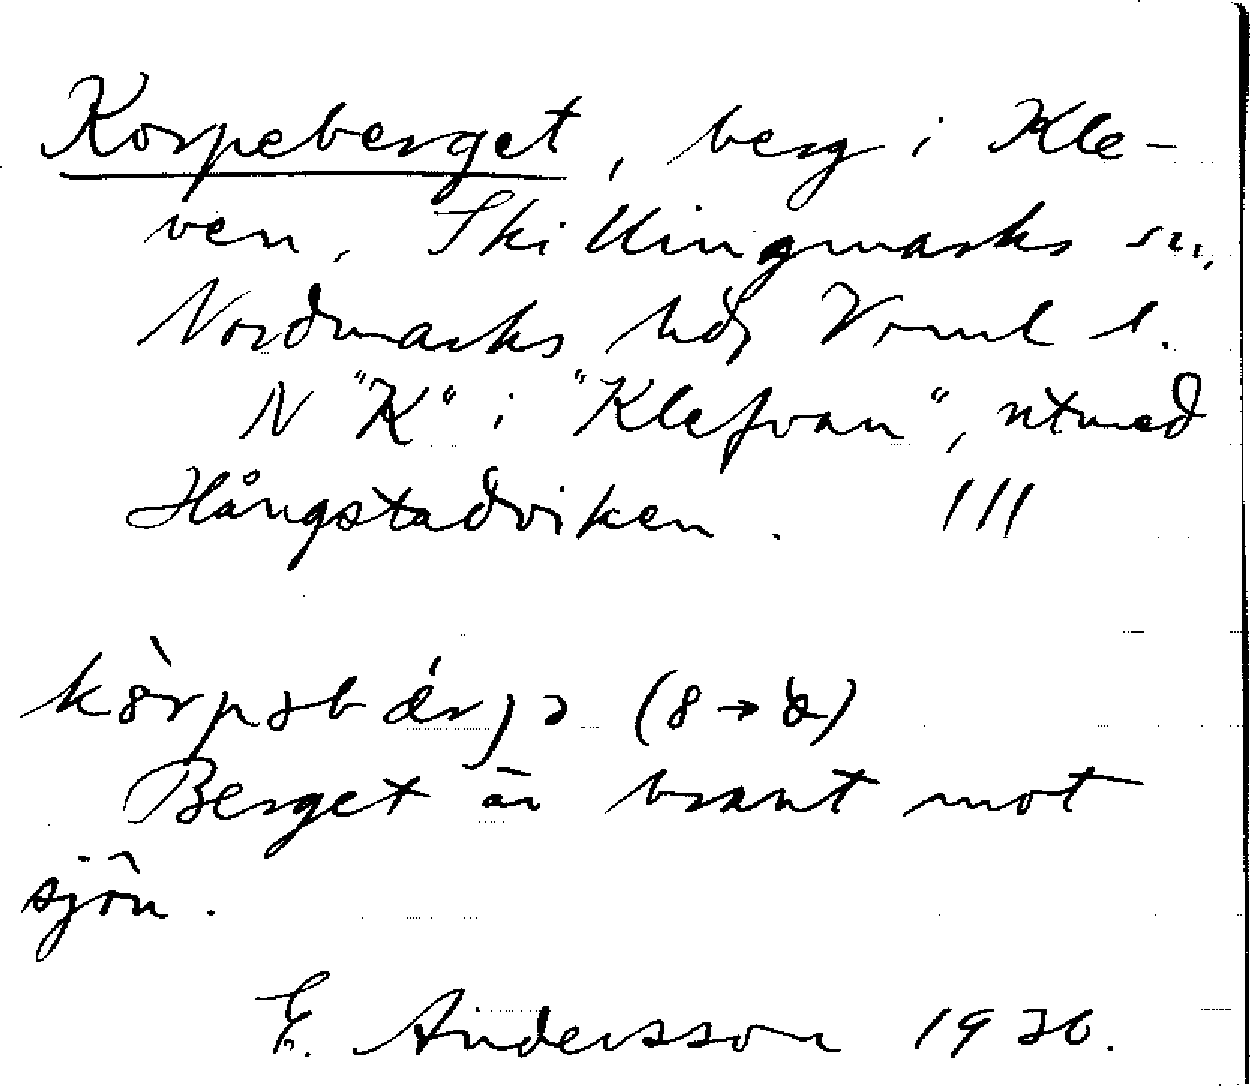 Korpeberget, berg i Kle-
ven, Skillingmarks sn,
Nordmarks hd, Vrml l.
N "K" i "Klefvan", utmed
Hångstadviken. III
Berget är brant mot
sjön.
E. Andersson 1930.